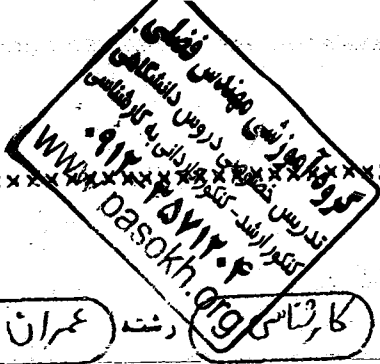 گروه آموزشی مهندس فضلی
تدریس خصوصی دروس دانشگاهی
کنکور ارشد - کنکور کاردانی به کارشناسی
۰۹۱۲ ۳۵۷۱۲۰۴
www.pasokh.org
کارشناسی رشته عمران